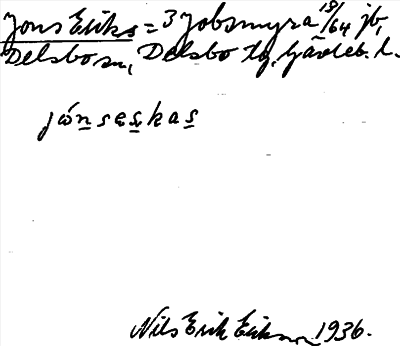 Jons Eriks = 3 Jobsmyra 18/64 jb,
Delsbo sn, Delsbo tg, Gävleb. l.
jónseskas
Nils Erik Eriksson 1936.